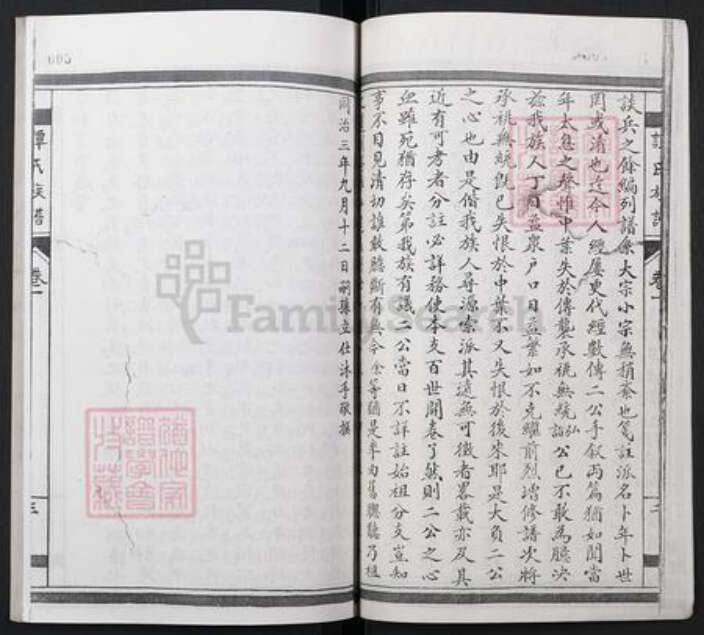 談兵之餘編列譜系大宗小宗無稍紊也箋註派名卜年卜世
罔或淆也迄今人經屢更代經數傳二公手敘両篇猶如聞當
年太息之聲惟中葉失於傳襲承祧無統弘諂公已不敢為臆决
茲我族人丁日益衆户口日益繁如不克繼前烈增修譜次將
承祧無統既已失恨於中葉不又失恨於後來耶是大負二公
之心也由是偕我族人尋源索派其遠無可徵者畧載亦及其
近有可考者分註必詳務使本支百世開卷了然則二公之心
血雖宛猶存矣第我族有議二公當日不詳註始祖分支豈知
事不目見清切誰敢臆斷有無今余等猶是率由舊與聽乃祖
同治三年九月十二日嗣孫立仕沐手敬撰
譚氏族譜
卷一
三
譚氏族譜
卷一
二
FamilySearch